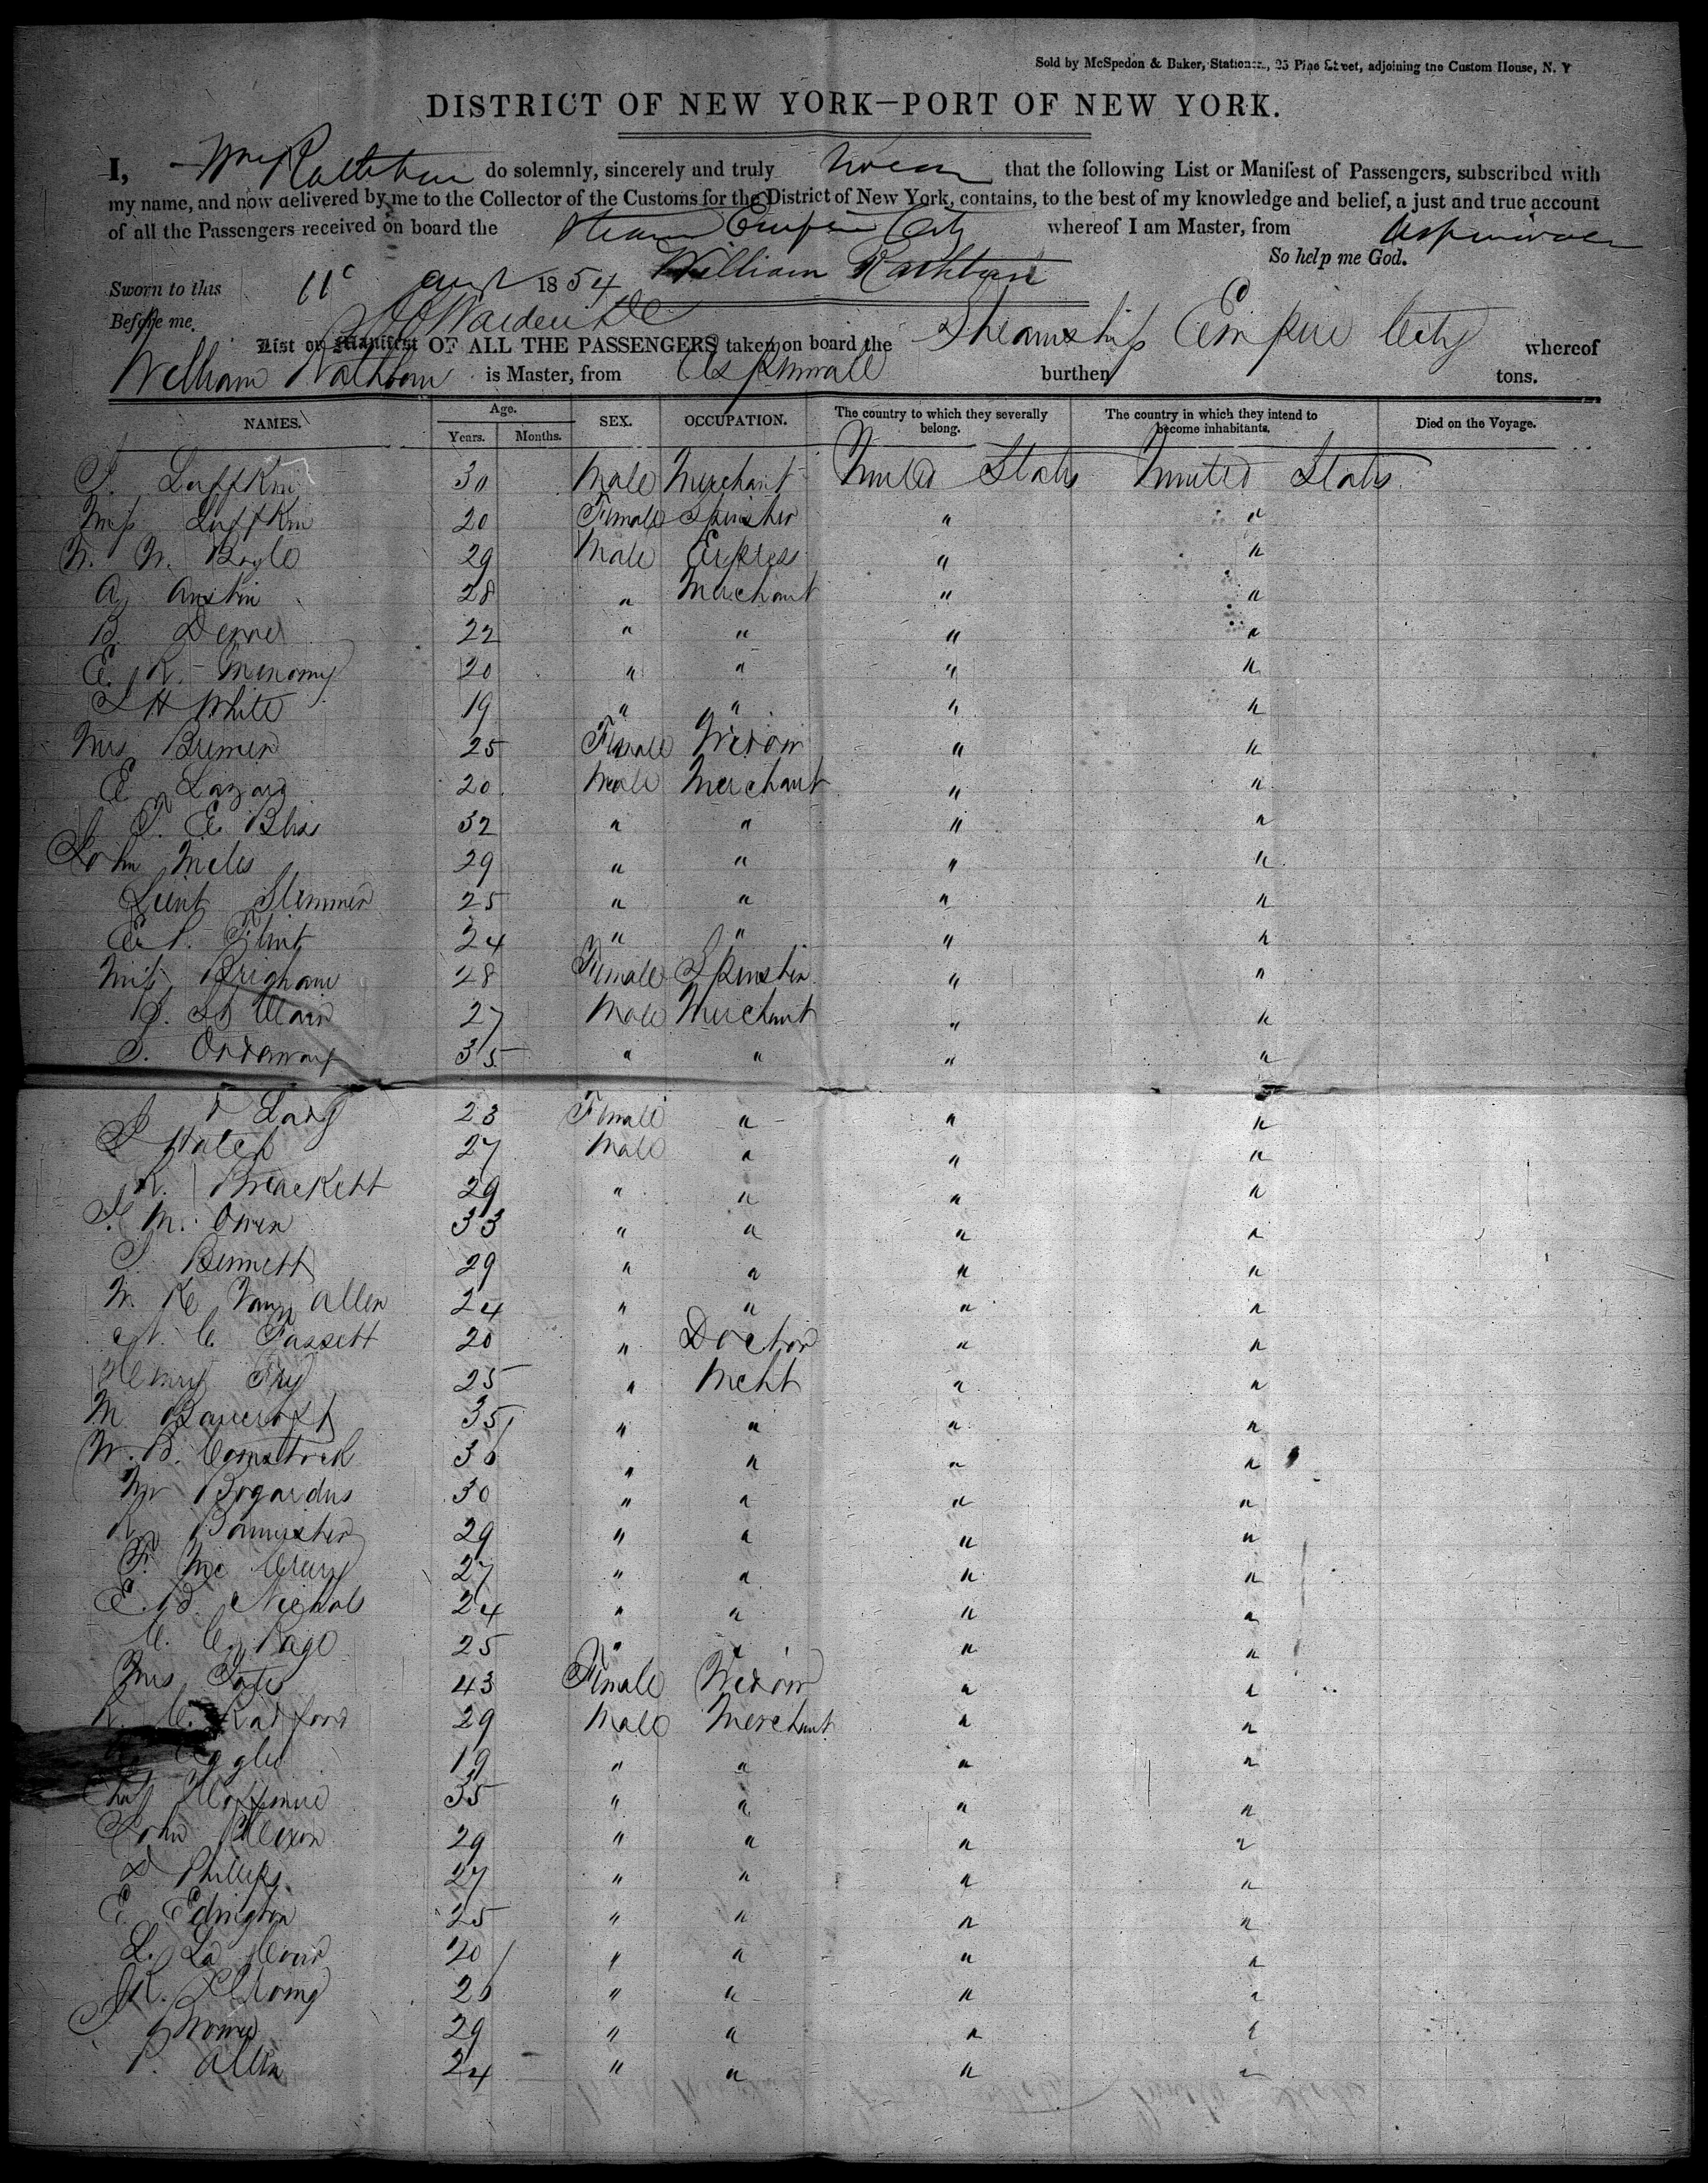 Sold by McSpedon & Baker, Stationers, 25 Pine Street, adjoining the Custom House, N. Y
DISTRICT OF NEW YORK—PORT OF NEW YORK.
I, Wm Rathbun do solemnly, sincerely and truly swear that the following List or Manifest of Passengers, subscribed with
my name, and now delivered by me to the Collector of the Customs for the District of New York, contains, to the best of my knowledge and belief, a just and true account
of all the Passengers received on board the Steam Empire City whereof I am Master, from Aspinwall
So help me God.
Sworn to this 11 Augt 1854 William Rathbun
Before me,
List or Manifest OF ALL THE PASSENGERS taken on board the Steamship Empire City whereof
William Rathbun is Master, from Aspinwall burthen tons.
NAMES. Age. Years. Months. SEX. OCCUPATION. The country to which they severally belong. The country in which they intend to become inhabitants. Died on the Voyage.
Luffkin 30 Male Merchant United States United States
Miss Luffkin 20 Female Spinster " "
N. N. Bogle 29 Male Express " "
A Austin 28 " Merchant " "
B. 22 " " " "
E. K. 20 " " " "
H White 19 " " " "
Mrs Bremer 25 Female Widow " "
E 20 Male Merchant " "
E Bliss 32 " " " "
John Miles 29 " " " "
Lieut Slemmer 25 " " " "
E. Flint 24 " " " "
Miss Brigham 28 Female Spinster " "
27 Male Merchant " "
Ordeway 35 " " " "
" Lady 23 Female " " "
Hatch 27 Male " " "
R. Brackett 29 " " " "
M. Owen 33 " " " "
Bennett 29 " " " "
Van Allen 24 " " " "
C Fassett 20 " Doctor " "
Henry Fry 25 " Mcht " "
M. Bancroft 35 " " " "
W. B. Comstock 36 " " " "
Mr Bogardus 30 " " " "
R Bannister 29 " " " "
F. McCrury 27 " " " "
E. B. Nichols 24 " " " "
C. C. Page 25 " " " "
Mrs 43 Female Widow " "
R. C. Radford 29 Male Merchant " "
19 " " " "
Chas Hoffmire 35 " " " "
John Nixon 29 " " " "
D Phillips. 27 " " " "
E Edington 25 " " " "
L. La 20 " " " "
26 " " " "
Brown 29 " " " "
P. Allen 24 " " " "